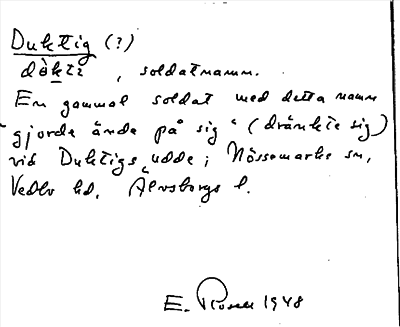 Duktig (?)
dòkti, soldatnamn.
En gammal soldat med detta namn
"gjorde ände på sig" (dränkte sig)
vid Duktigs udde i Nössemarks sn,
Vedbo hd, Älvsborgs l.
E. Rosell 1948